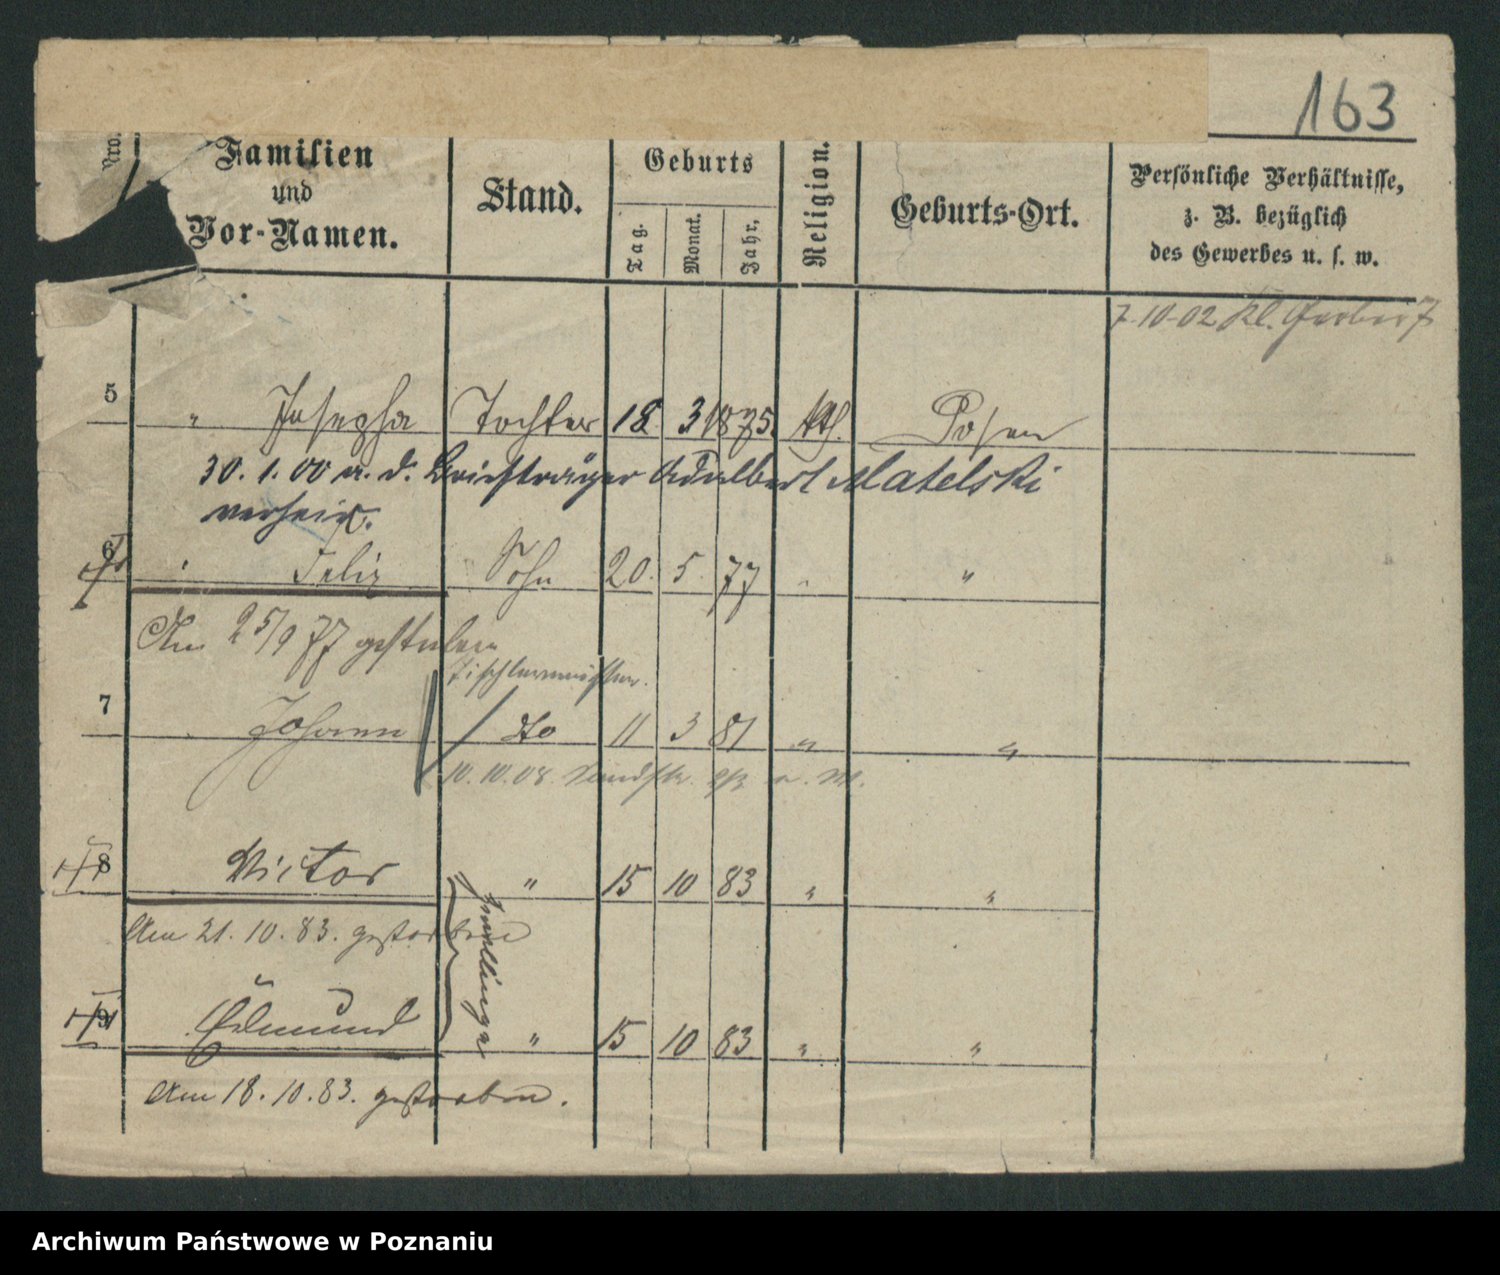 163
Nro.
Familien
und
Vor-Namen.
Stand.
Geburts
Tag.
Monat.
Jahr.
Religion.
Geburts-Ort.
Persönliche Verhältnisse,
z. B. bezüglich
des Gewerbes u. s. w.
7.10.02 Kl. Gerberstr 7
5 " Josepha Tochter 18. 3 1875. kth. Posen
30. 1. 00 m. d. Briefträger Adalbert Matelski
verheir.
6 " Felix Sohn 20. 5. 77 " "
Am 25/9 77 gestorben
Tischlermeister.
7 " Johann do 11 3 81 " "
10.10.08.
8 Victor " 15 10 83 " "
Am 21. 10. 83. gestorben
Zwillinge
9 Edmund " 15 10 83 " "
Am 18. 10. 83. gestorben.
Archiwum Państwowe w Poznaniu